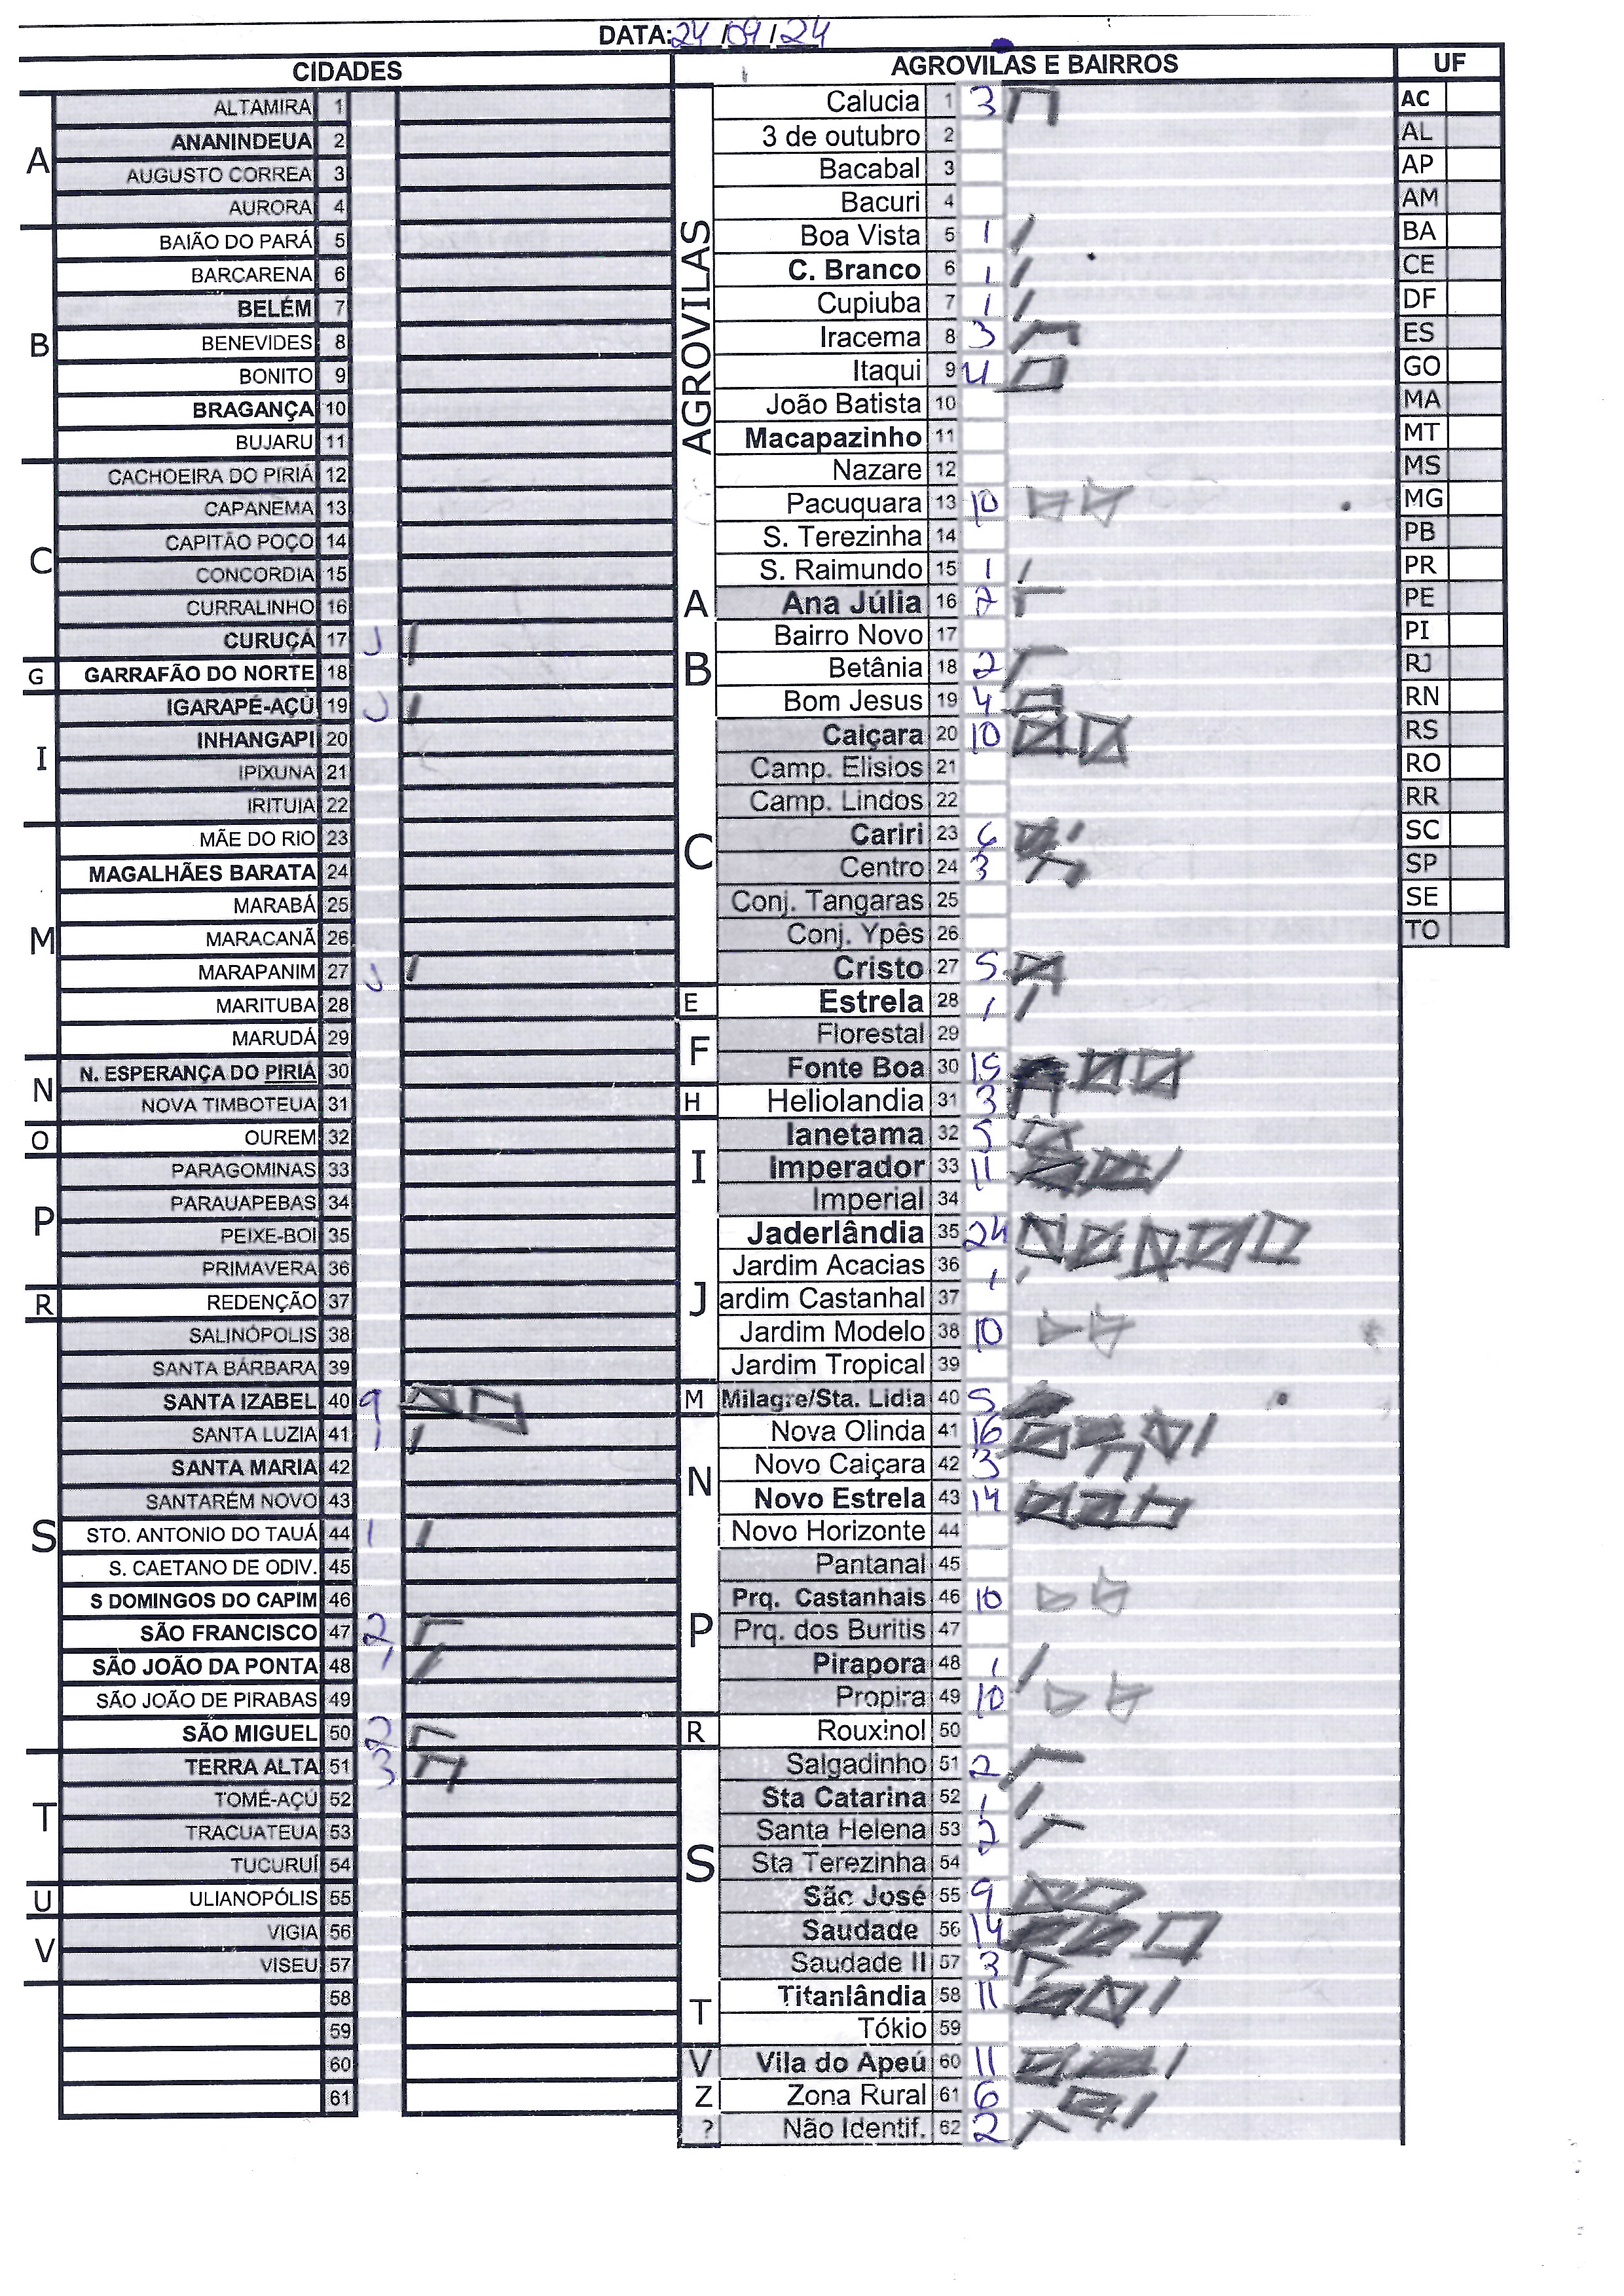 DATA: 24/09/24
CIDADES
A
ALTAMIRA 1
ANANINDEUA 2
AUGUSTO CORREA 3
AURORA 4
B
BAIÃO DO PARÁ 5
BARCARENA 6
BELÉM 7
BENEVIDES 8
BONITO 9
BRAGANÇA 10
BUJARU 11
C
CACHOEIRA DO PIRIÁ 12
CAPANEMA 13
CAPITÃO POÇO 14
CONCORDIA 15
CURRALINHO 16
CURUÇÁ 17
G
GARRAFÃO DO NORTE 18
I
IGARAPÉ-AÇÚ 19
INHANGAPI 20
IPIXUNA 21
IRITUIA 22
M
MÃE DO RIO 23
MAGALHÃES BARATA 24
MARABÁ 25
MARACANÃ 26
MARAPANIM 27
MARITUBA 28
MARUDÁ 29
N
N. ESPERANÇA DO PIRIÁ 30
NOVA TIMBOTEUA 31
O
OUREM 32
P
PARAGOMINAS 33
PARAUAPEBAS 34
PEIXE-BOI 35
PRIMAVERA 36
R
REDENÇÃO 37
S
SALINÓPOLIS 38
SANTA BÁRBARA 39
SANTA IZABEL 40 9
SANTA LUZIA 41 1
SANTA MARIA 42
SANTARÉM NOVO 43
STO. ANTONIO DO TAUÁ 44 1
S. CAETANO DE ODIV. 45
S DOMINGOS DO CAPIM 46
SÃO FRANCISCO 47 2
SÃO JOÃO DA PONTA 48 1
SÃO JOÃO DE PIRABAS 49
SÃO MIGUEL 50 2
T
TERRA ALTA 51 3
TOMÉ-AÇÚ 52
TRACUATEUA 53
TUCURUÍ 54
U
ULIANOPÓLIS 55
V
VIGIA 56
VISEU 57
58
59
60
61
AGROVILAS E BAIRROS
AGROVILAS
Calucia 1 3
3 de outubro 2
Bacabal 3
Bacuri 4
Boa Vista 5 1
C. Branco 6 1
Cupiuba 7 1
Iracema 8 3
Itaqui 9 4
João Batista 10
Macapazinho 11
Nazare 12
Pacuquara 13 10
S. Terezinha 14
S. Raimundo 15 1
A
Ana Júlia 16 2
B
Bairro Novo 17
Betânia 18 2
Bom Jesus 19 4
C
Caiçara 20 10
Camp. Elisios 21
Camp. Lindos 22
Cariri 23 6
Centro 24 3
Conj. Tangaras 25
Conj. Ypês 26
Cristo 27 5
E
Estrela 28 1
F
Florestal 29
Fonte Boa 30 15
H
Heliolandia 31 3
I
Ianetama 32 5
Imperador 33 11
Imperial 34
J
Jaderlândia 35 24
Jardim Acacias 36 1
ardim Castanhal 37
Jardim Modelo 38 10
Jardim Tropical 39
M
Milagre/Sta. Lidia 40 5
N
Nova Olinda 41 16
Novo Caiçara 42 3
Novo Estrela 43 14
Novo Horizonte 44
P
Pantanal 45
Prq. Castanhais 46 10
Prq. dos Buritis 47
Pirapora 48 1
Propira 49 10
R
Rouxinol 50
S
Salgadinho 51 2
Sta Catarina 52 1
Santa Helena 53 2
Sta Terezinha 54
São José 55 9
Saudade 56 14
Saudade II 57 3
T
Titanlândia 58 11
Tókio 59
V
Vila do Apeú 60 11
Z
Zona Rural 61 6
?
Não Identif. 62 2
UF
AC
AL
AP
AM
BA
CE
DF
ES
GO
MA
MT
MS
MG
PB
PR
PE
PI
RJ
RN
RS
RO
RR
SC
SP
SE
TO